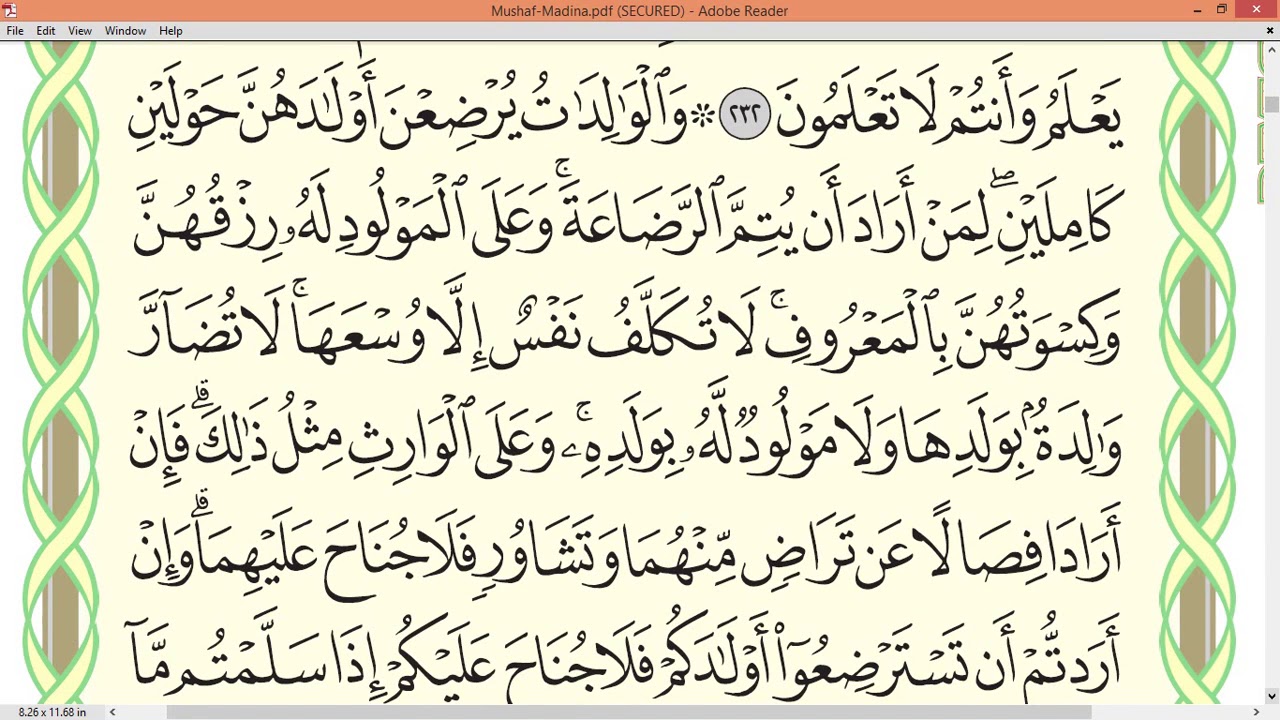 Mushaf-Madina.pdf (SECURED) - Adobe Reader
File Edit View Window Help
يَعْلَمُ وَأَنتُمْ لَا تَعْلَمُونَ ٢٣٢ ۞ وَٱلْوَٰلِدَٰتُ يُرْضِعْنَ أَوْلَٰدَهُنَّ حَوْلَيْنِ
كَامِلَيْنِۖ لِمَنْ أَرَادَ أَن يُتِمَّ ٱلرَّضَاعَةَۚ وَعَلَى ٱلْمَوْلُودِ لَهُۥ رِزْقُهُنَّ
وَكِسْوَتُهُنَّ بِٱلْمَعْرُوفِۚ لَا تُكَلَّفُ نَفْسٌ إِلَّا وُسْعَهَاۚ لَا تُضَآرَّ
وَٰلِدَةُۢ بِوَلَدِهَا وَلَا مَوْلُودٌ لَّهُۥ بِوَلَدِهِۦۚ وَعَلَى ٱلْوَارِثِ مِثْلُ ذَٰلِكَۗ فَإِنْ
أَرَادَا فِصَالًا عَن تَرَاضٍ مِّنْهُمَا وَتَشَاوُرٍ فَلَا جُنَاحَ عَلَيْهِمَاۗ وَإِنْ
أَرَدتُّمْ أَن تَسْتَرْضِعُوٓا۟ أَوْلَٰدَكُمْ فَلَا جُنَاحَ عَلَيْكُمْ إِذَا سَلَّمْتُم مَّآ
8.26 x 11.68 in